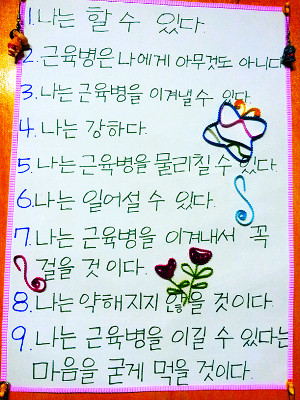 1. 나는 할 수 있다.
2. 근육병은 나에게 아무것도 아니다
3. 나는 근육병을 이겨낼 수 있다
4. 나는 강하다.
5. 나는 근육병을 물리칠 수 있다.
6. 나는 일어설 수 있다.
7. 나는 근육병을 이겨내서 꼭
걸을 것이다.
8. 나는 약해지지 않을 것이다.
9. 나는 근육병을 이길 수 있다는
마음을 굳게 먹을 것이다.